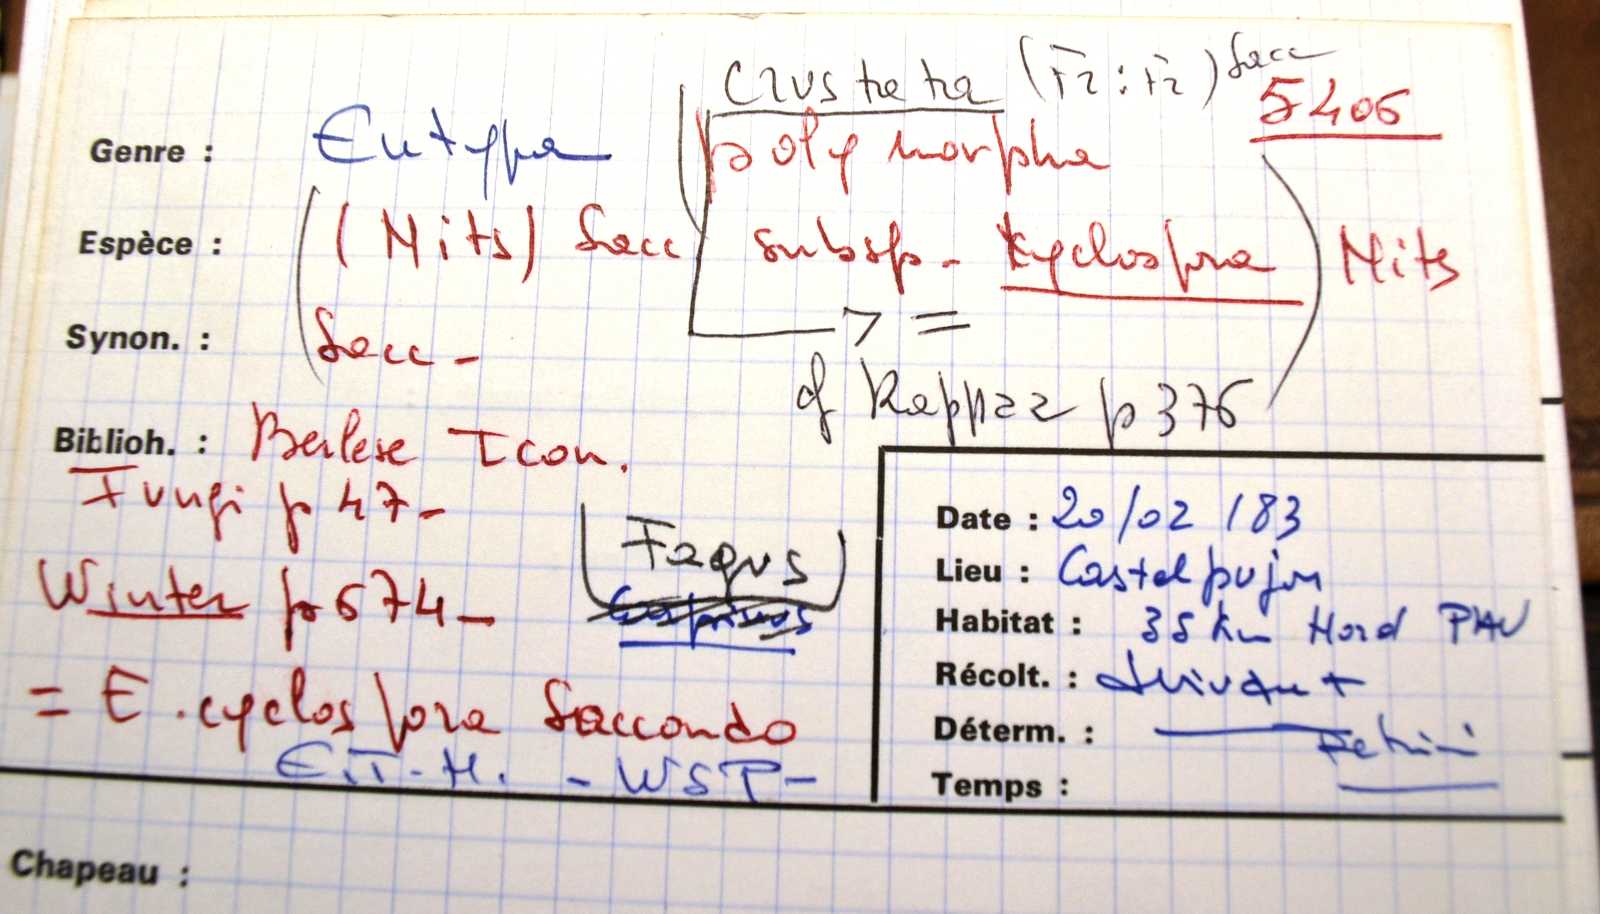 Crustata (Fr : Fr) Sacc
5406
Genre : Eutypa polymorpha
Espèce : (Nits) Sacc subsp. kyclospora Nits
Synon. : Sacc - > =
cf Rappaz p 376
Biblioh. : Berlese Icon.
Fungi p 47 -
Winter p 674 -
Fagus
= E. cyclospora Saccondo
E.T.H. - WSP -
Date : 20/02/83
Lieu : Castelpujon
Habitat : 35 km Nord PAU
Récolt. :
Déterm. : Petrini
Temps :
Chapeau :